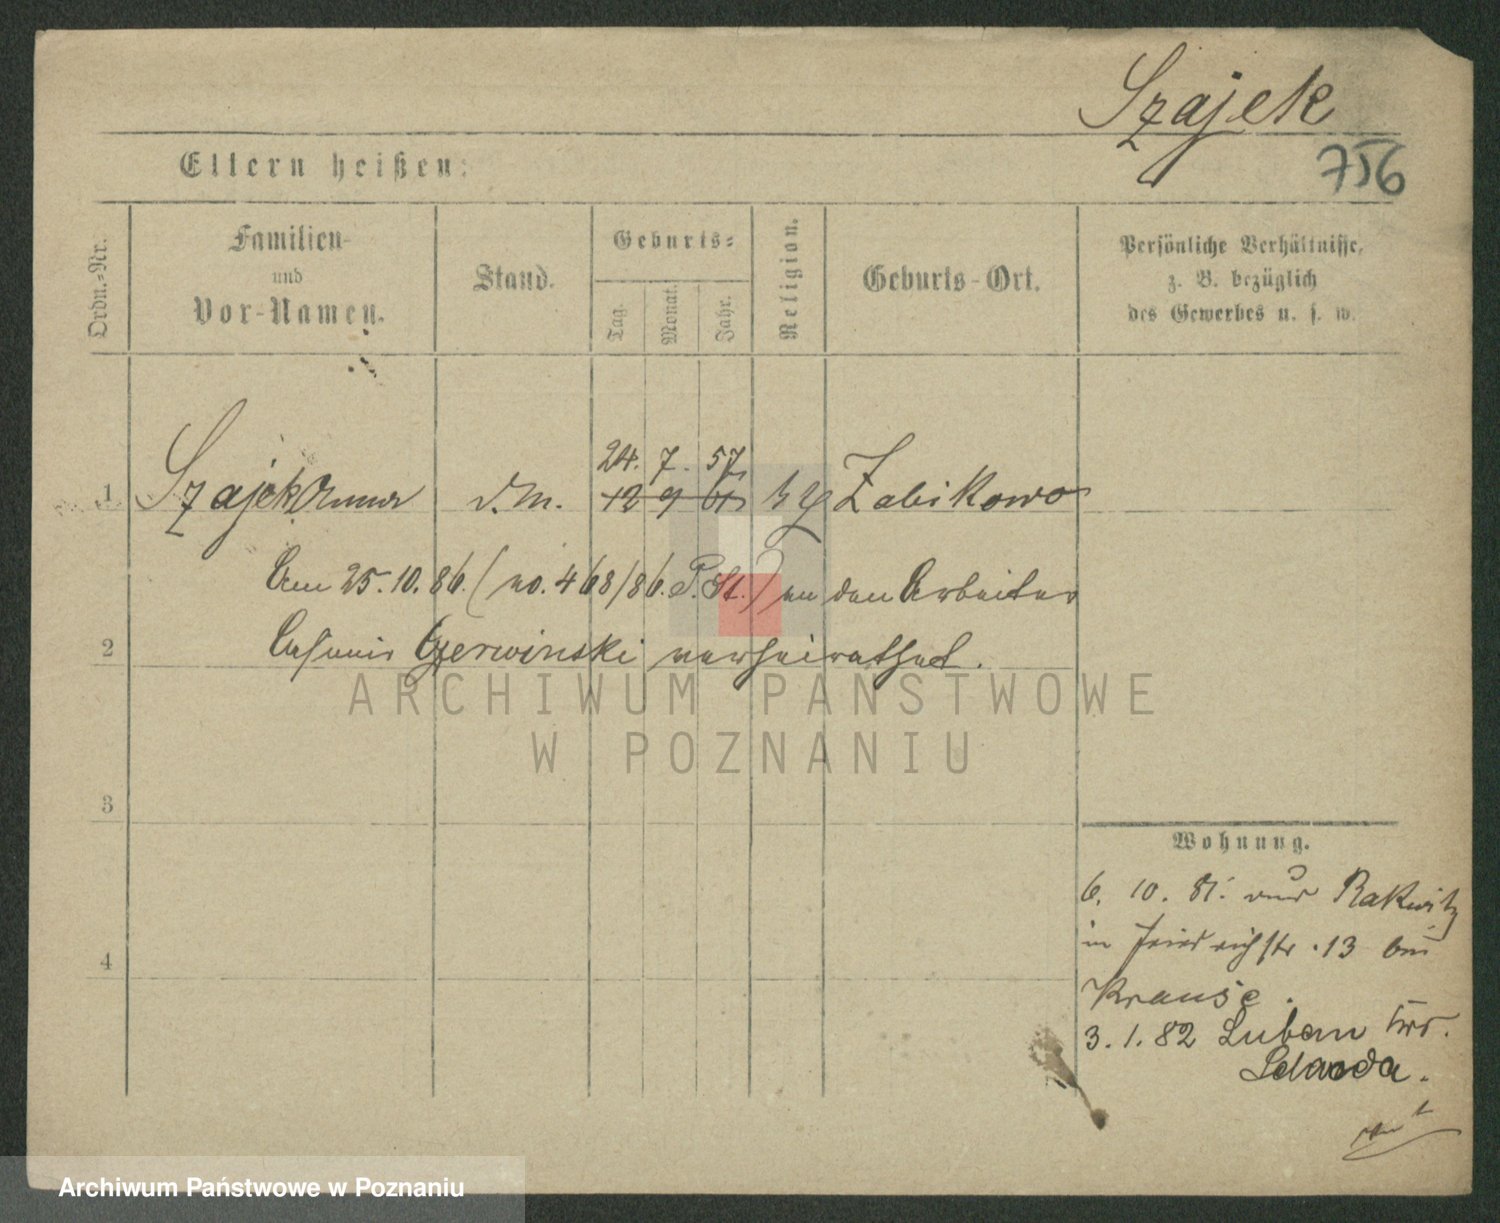 Szajek
756
Eltern heißen:
Ordn.-Nr.
Familien-
und
Vor-Namen.
Stand.
Geburts-
Tag.
Monat.
Jahr.
Religion.
Geburts-Ort.
Persönliche Verhältnisse,
z. B. bezüglich
des Gewerbes u. s. w.
24. 7. 57
1 Szajek Anna d. M. 12 9 61 kt Zabikowo
Am 25.10.86. (no. 468/86. P. St.) an den Arbeiter
2 Casimir Czerwinski verheirathet.
ARCHIWUM PAŃSTWOWE
W POZNANIU
3
Wohnung.
6. 10. 81. aus Rakwitz
in Friedrichstr. 13 bei
4
Krause.
3. 1. 82 Luban
Archiwum Państwowe w Poznaniu